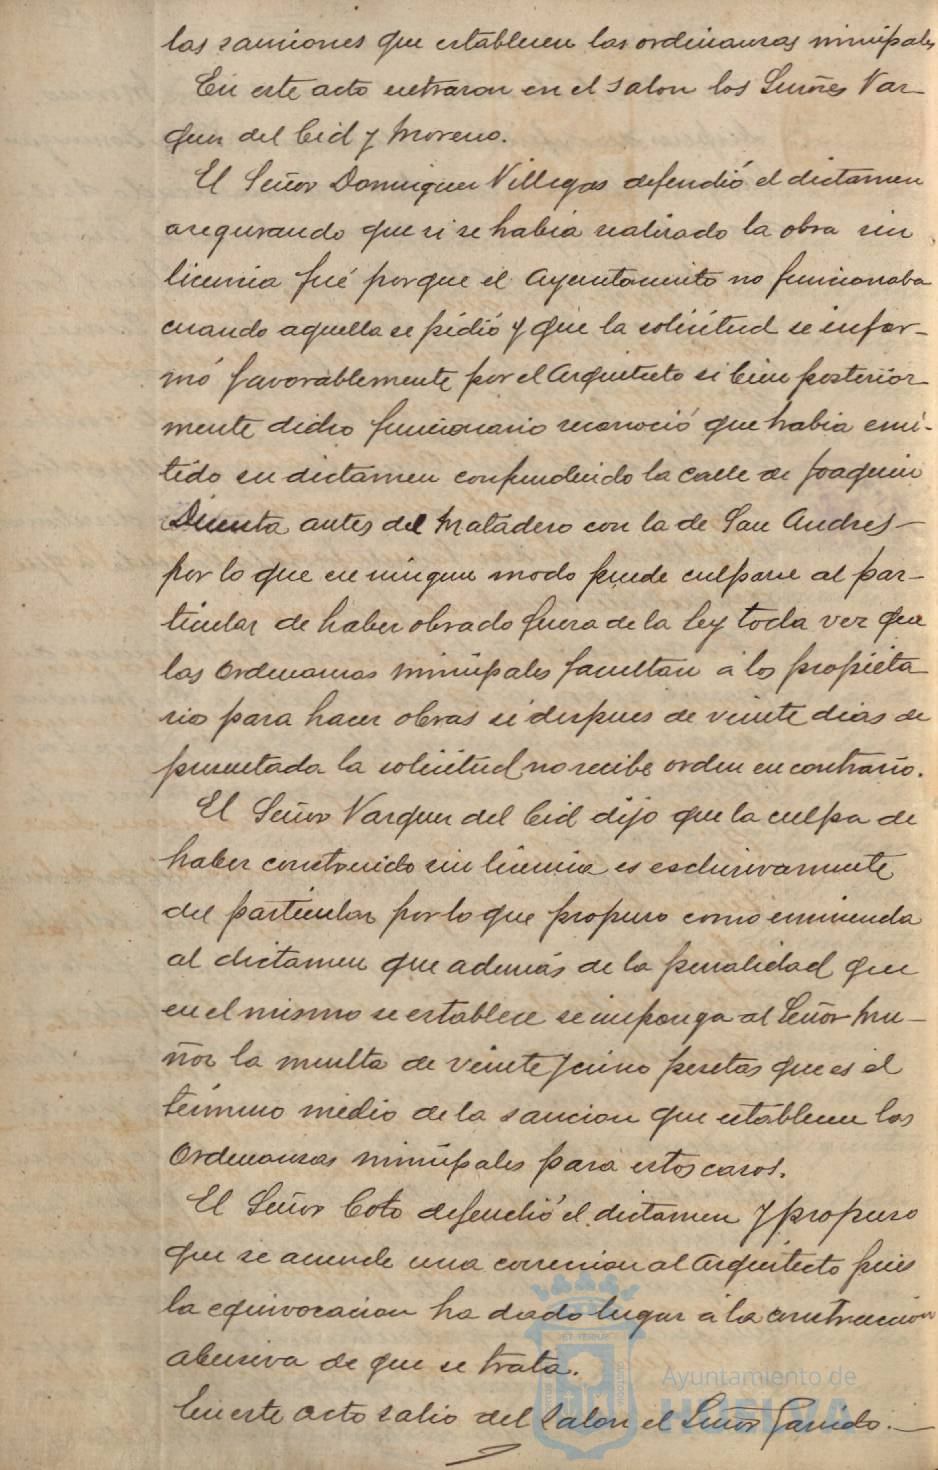 las sanciones que establecen las ordenanzas municipales
En este acto entraron en el salon los Señores Vaz-
quez del Cid y Moreno.
El Señor Dominguez Villegas defendió el dictamen
asegurando que si se habia realizado la obra sin
licencia fué porque el Ayuntamiento no funcionaba
cuando aquella se pidió y que la solicitud se infor-
mó favorablemente por el Arquitecto si bien posterior-
mente dicho funcionario reconoció que habia emi-
tido su dictamen confundiendo la calle de Joaquin
Dicenta antes del Matadero con la de San Andres-
por lo que en ningun modo puede culparse al par-
ticular de haber obrado fuera de la ley toda vez que
las Ordenanzas municipales facultan á los propieta
rios para hacer obras si despues de veinte dias de
presentada la solicitud no recibe orden en contrario.
El Señor Vazquez del Cid dijo que la culpa de
haber construido sin licencia es esclusivamente
del particular por lo que propuso como enmienda
al dictamen que además de la penalidad que
en el mismo se establece se imponga al Señor Mu-
ñoz la multa de veinte y cinco pesetas que es el
término medio de la sancion que establecen las
Ordenanzas municipales para estos casos.
El Señor Coto defendió el dictamen y propuso
que se acuerde una correccion al Arquitecto pues
la equivocacion ha dado lugar á la construccion
abusiva de que se trata.
En este acto salio del salon el Señor Garrido.-
Ayuntamiento de
HUELVA